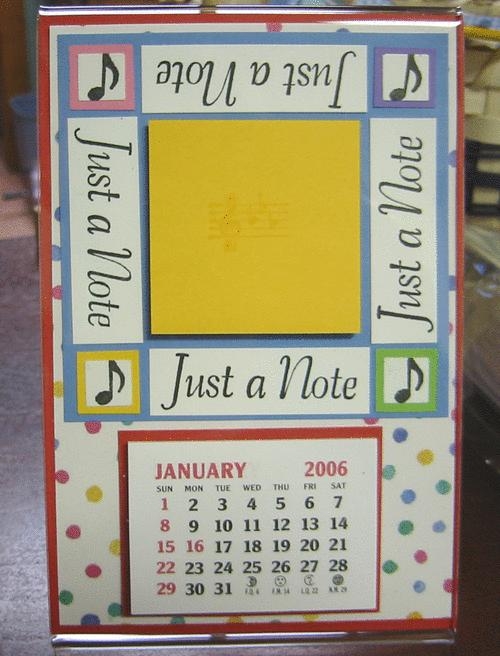 Just a Note
Just a Note
Just a Note
Just a Note
JANUARY 2006
SUN MON TUE WED THU FRI SAT
1 2 3 4 5 6 7
8 9 10 11 12 13 14
15 16 17 18 19 20 21
22 23 24 25 26 27 28
29 30 31 F.Q. 6 F.M. 14 L.Q. 22 N.M. 29